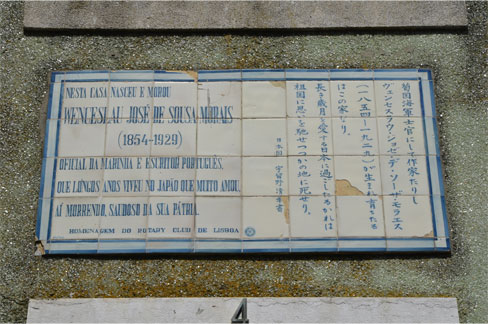 NESTA CASA NASCEU E MOROU
WENCESLAU JOSÉ DE SOUSA MORAIS
(1854-1929)
OFICIAL DA MARINHA E ESCRITOR PORTUGUÊS,
QUE LONGOS ANOS VIVEU NO JAPÃO QUE MUITO AMOU,
AÍ MORRENDO, SAUDOSO DA SUA PÁTRIA.
HOMENAGEM DO ROTARY CLUB DE LISBOA
葡国海軍士官にして作家たりし
ヴェンセスラウ・ジョゼ・デ・ソーザ・モラエス
(一八五四－一九二九)が生まれ育ちたる
はこの家なり。
長き歳月を愛する日本に過ごしたるかれは
祖国に思いを馳せつつかの地に死せり。
日本国
4